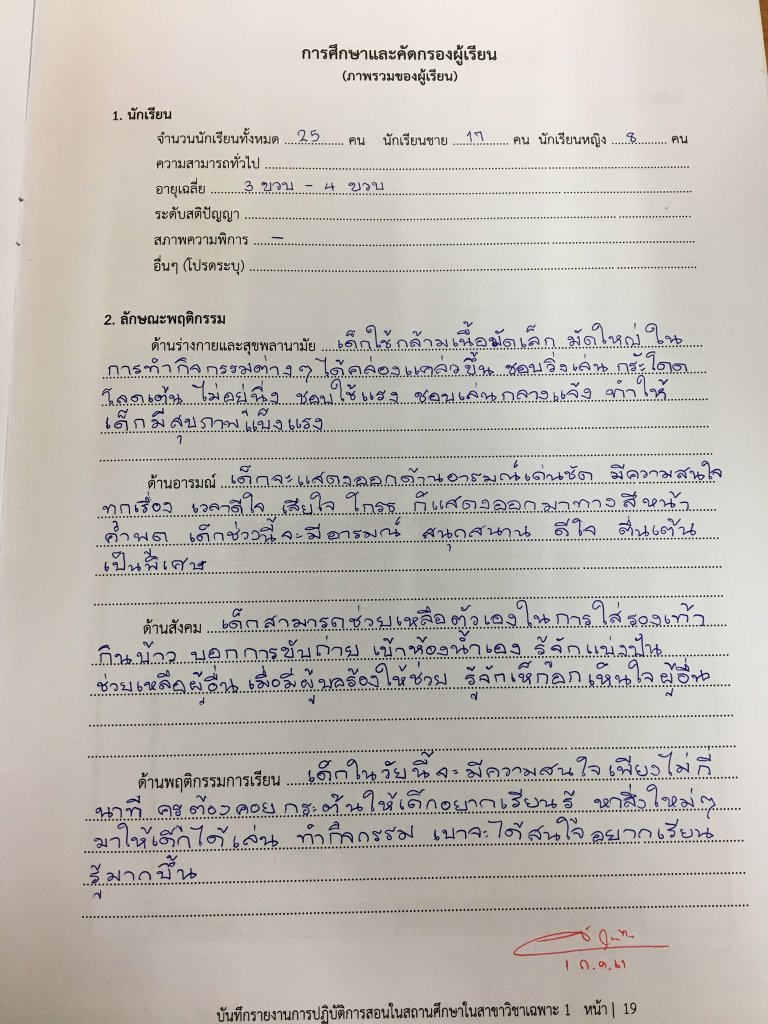 การศึกษาและคัดกรองผู้เรียน
(ภาพรวมของผู้เรียน)
1. นักเรียน
จำนวนนักเรียนทั้งหมด 25 คน นักเรียนชาย 17 คน นักเรียนหญิง 8 คน
ความสามารถทั่วไป
อายุเฉลี่ย 3 ขวบ - 4 ขวบ
ระดับสติปัญญา
สภาพความพิการ -
อื่นๆ (โปรดระบุ)
2. ลักษณะพฤติกรรม
ด้านร่างกายและสุขพลานามัย เด็กใช้กล้ามเนื้อมัดเล็ก มัดใหญ่ ใน
การทำกิจกรรมต่างๆ ได้คล่องแคล่วขึ้น ชอบวิ่งเล่น กระโดด
โลดเต้น ไม่อยู่นิ่ง ชอบใช้แรง ชอบเล่นกลางแจ้ง ทำให้
เด็กมีสุขภาพแข็งแรง
ด้านอารมณ์ เด็กจะแสดงออกด้านอารมณ์เด่นชัด มีความสนใจ
ทุกเรื่อง เวลาดีใจ เสียใจ โกรธ ก็แสดงออกมาทางสีหน้า
คำพูด เด็กช่วงนี้จะมีอารมณ์ สนุกสนาน ดีใจ ตื่นเต้น
เป็นพิเศษ
ด้านสังคม เด็กสามารถช่วยเหลือตัวเองในการใส่รองเท้า
กินข้าว บอกการขับถ่าย เข้าห้องน้ำเอง รู้จักแบ่งปัน
ช่วยเหลือผู้อื่น เมื่อมีผู้ร้องให้ช่วย รู้จักเห็นใจผู้อื่น
ด้านพฤติกรรมการเรียน เด็กในวัยนี้จะมีความสนใจเพียงไม่กี่
นาที ครูต้องคอยกระตุ้นให้เด็กอยากเรียนรู้ หาสิ่งใหม่ๆ
มาให้เด็กได้เล่น ทำกิจกรรม เขาจะได้สนใจอยากเรียน
รู้มากขึ้น
1 ก.ค. 61
บันทึกรายงานการปฏิบัติการสอนในสถานศึกษาในสาขาวิชาเฉพาะ 1 หน้า | 19